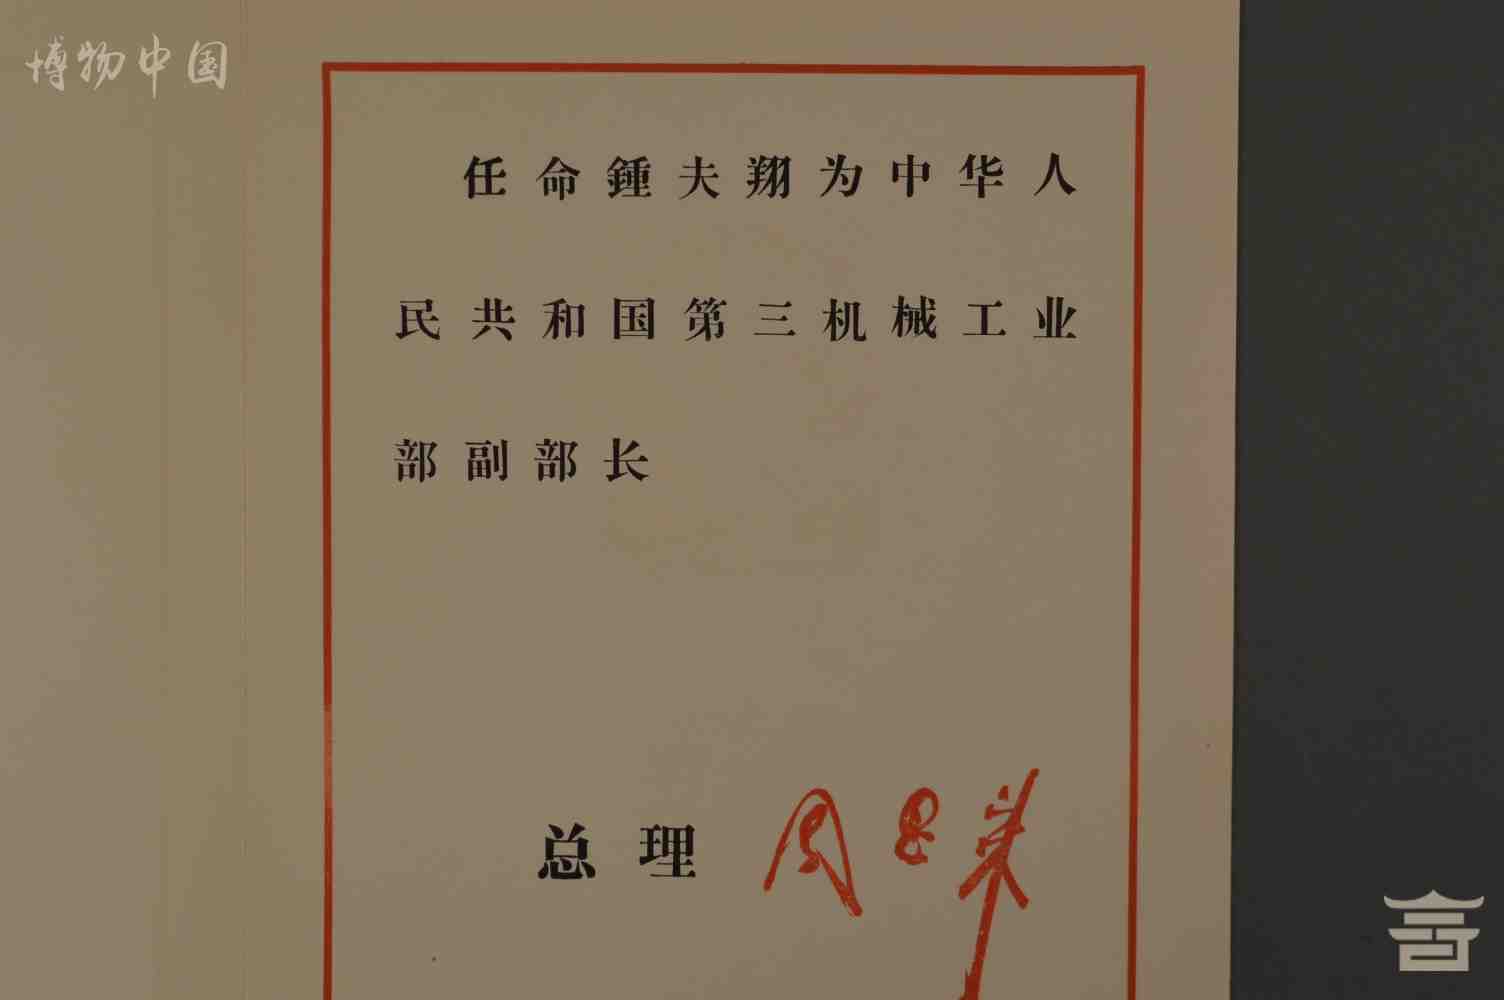 博物中国
任命鍾夫翔为中华人
民共和国第三机械工业
部副部长
总理 周恩来